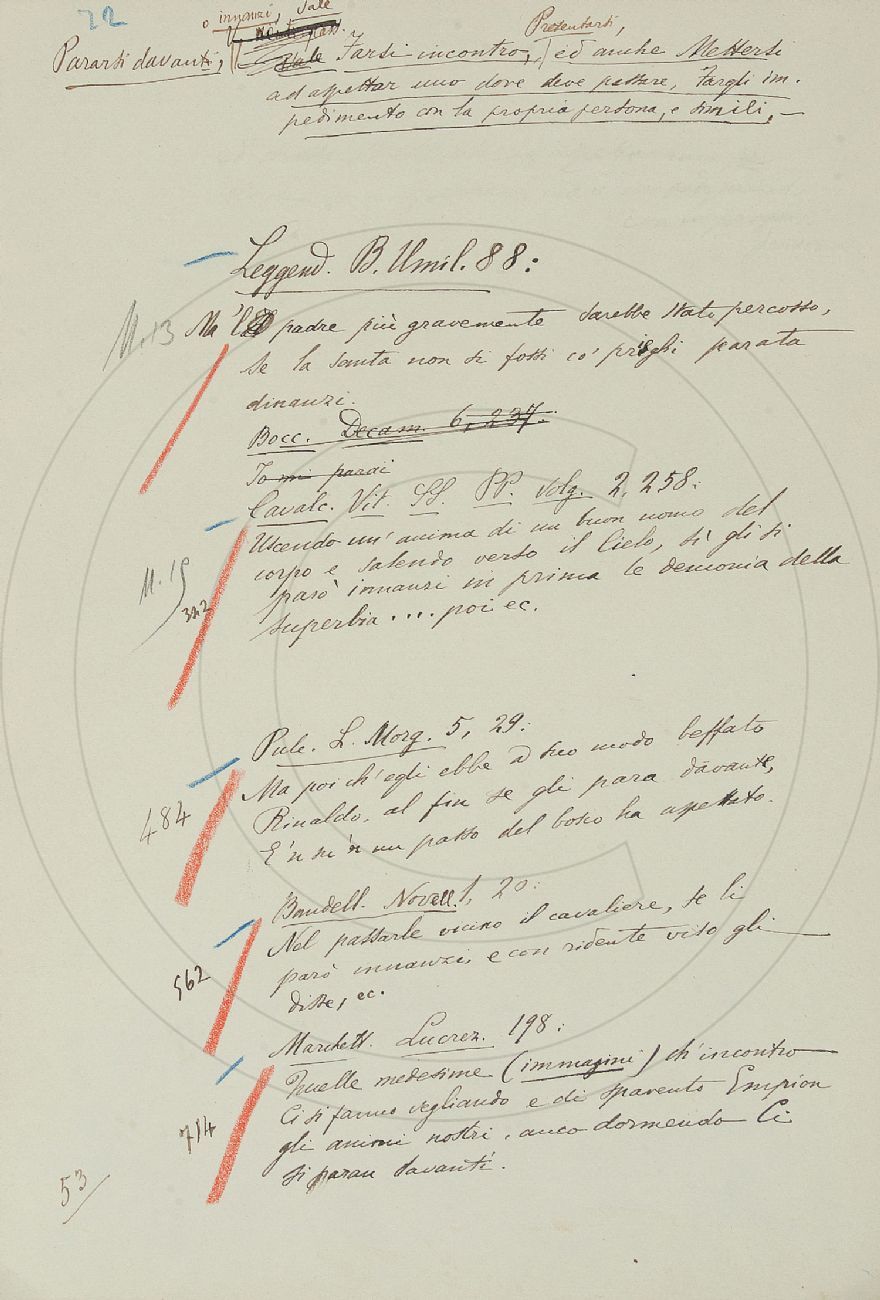 22
o innanzi, vale
Pararsi davanti, Vale Farsi incontro, Presentarsi, ed anche Mettersi
ad aspettar uno dove deve passare, Fargli im-
pedimento con la propria persona, e simili. –
Leggend. B. Umil. 88:
M. 13 Ma 'l padre più gravemente sarebbe stato percosso,
se la santa non si fossi co' prieghi parata
dinanzi.
Bocc. Decam. 6, 237.
Io mi parai
Cavalc. Vit. SS. PP. volg. 2, 258:
M. 19 Uscendo un'anima di un buon uomo del
corpo e salendo verso il Cielo, sì gli si
342 parò innanzi in prima le demonia della
superbia .... poi ec.
Pulc. L. Morg. 5, 29:
Ma poi ch'egli ebbe a suo modo beffato
484 Rinaldo, al fin se gli para davante,
E 'n su 'n un passo del bosco ha aspettato.
Bandell. Novell. 1, 20:
Nel passarle vicino il cavaliere, se li
562 parò innanzi, e con ridente viso gli
disse, ec.
Marchett. Lucrez. 198:
Quelle medesime (immagini) ch'incontro
Ci si fanno vegliando e di spavento Empion
714 gli animi nostri, anco dormendo Ci
si paran davanti.
53